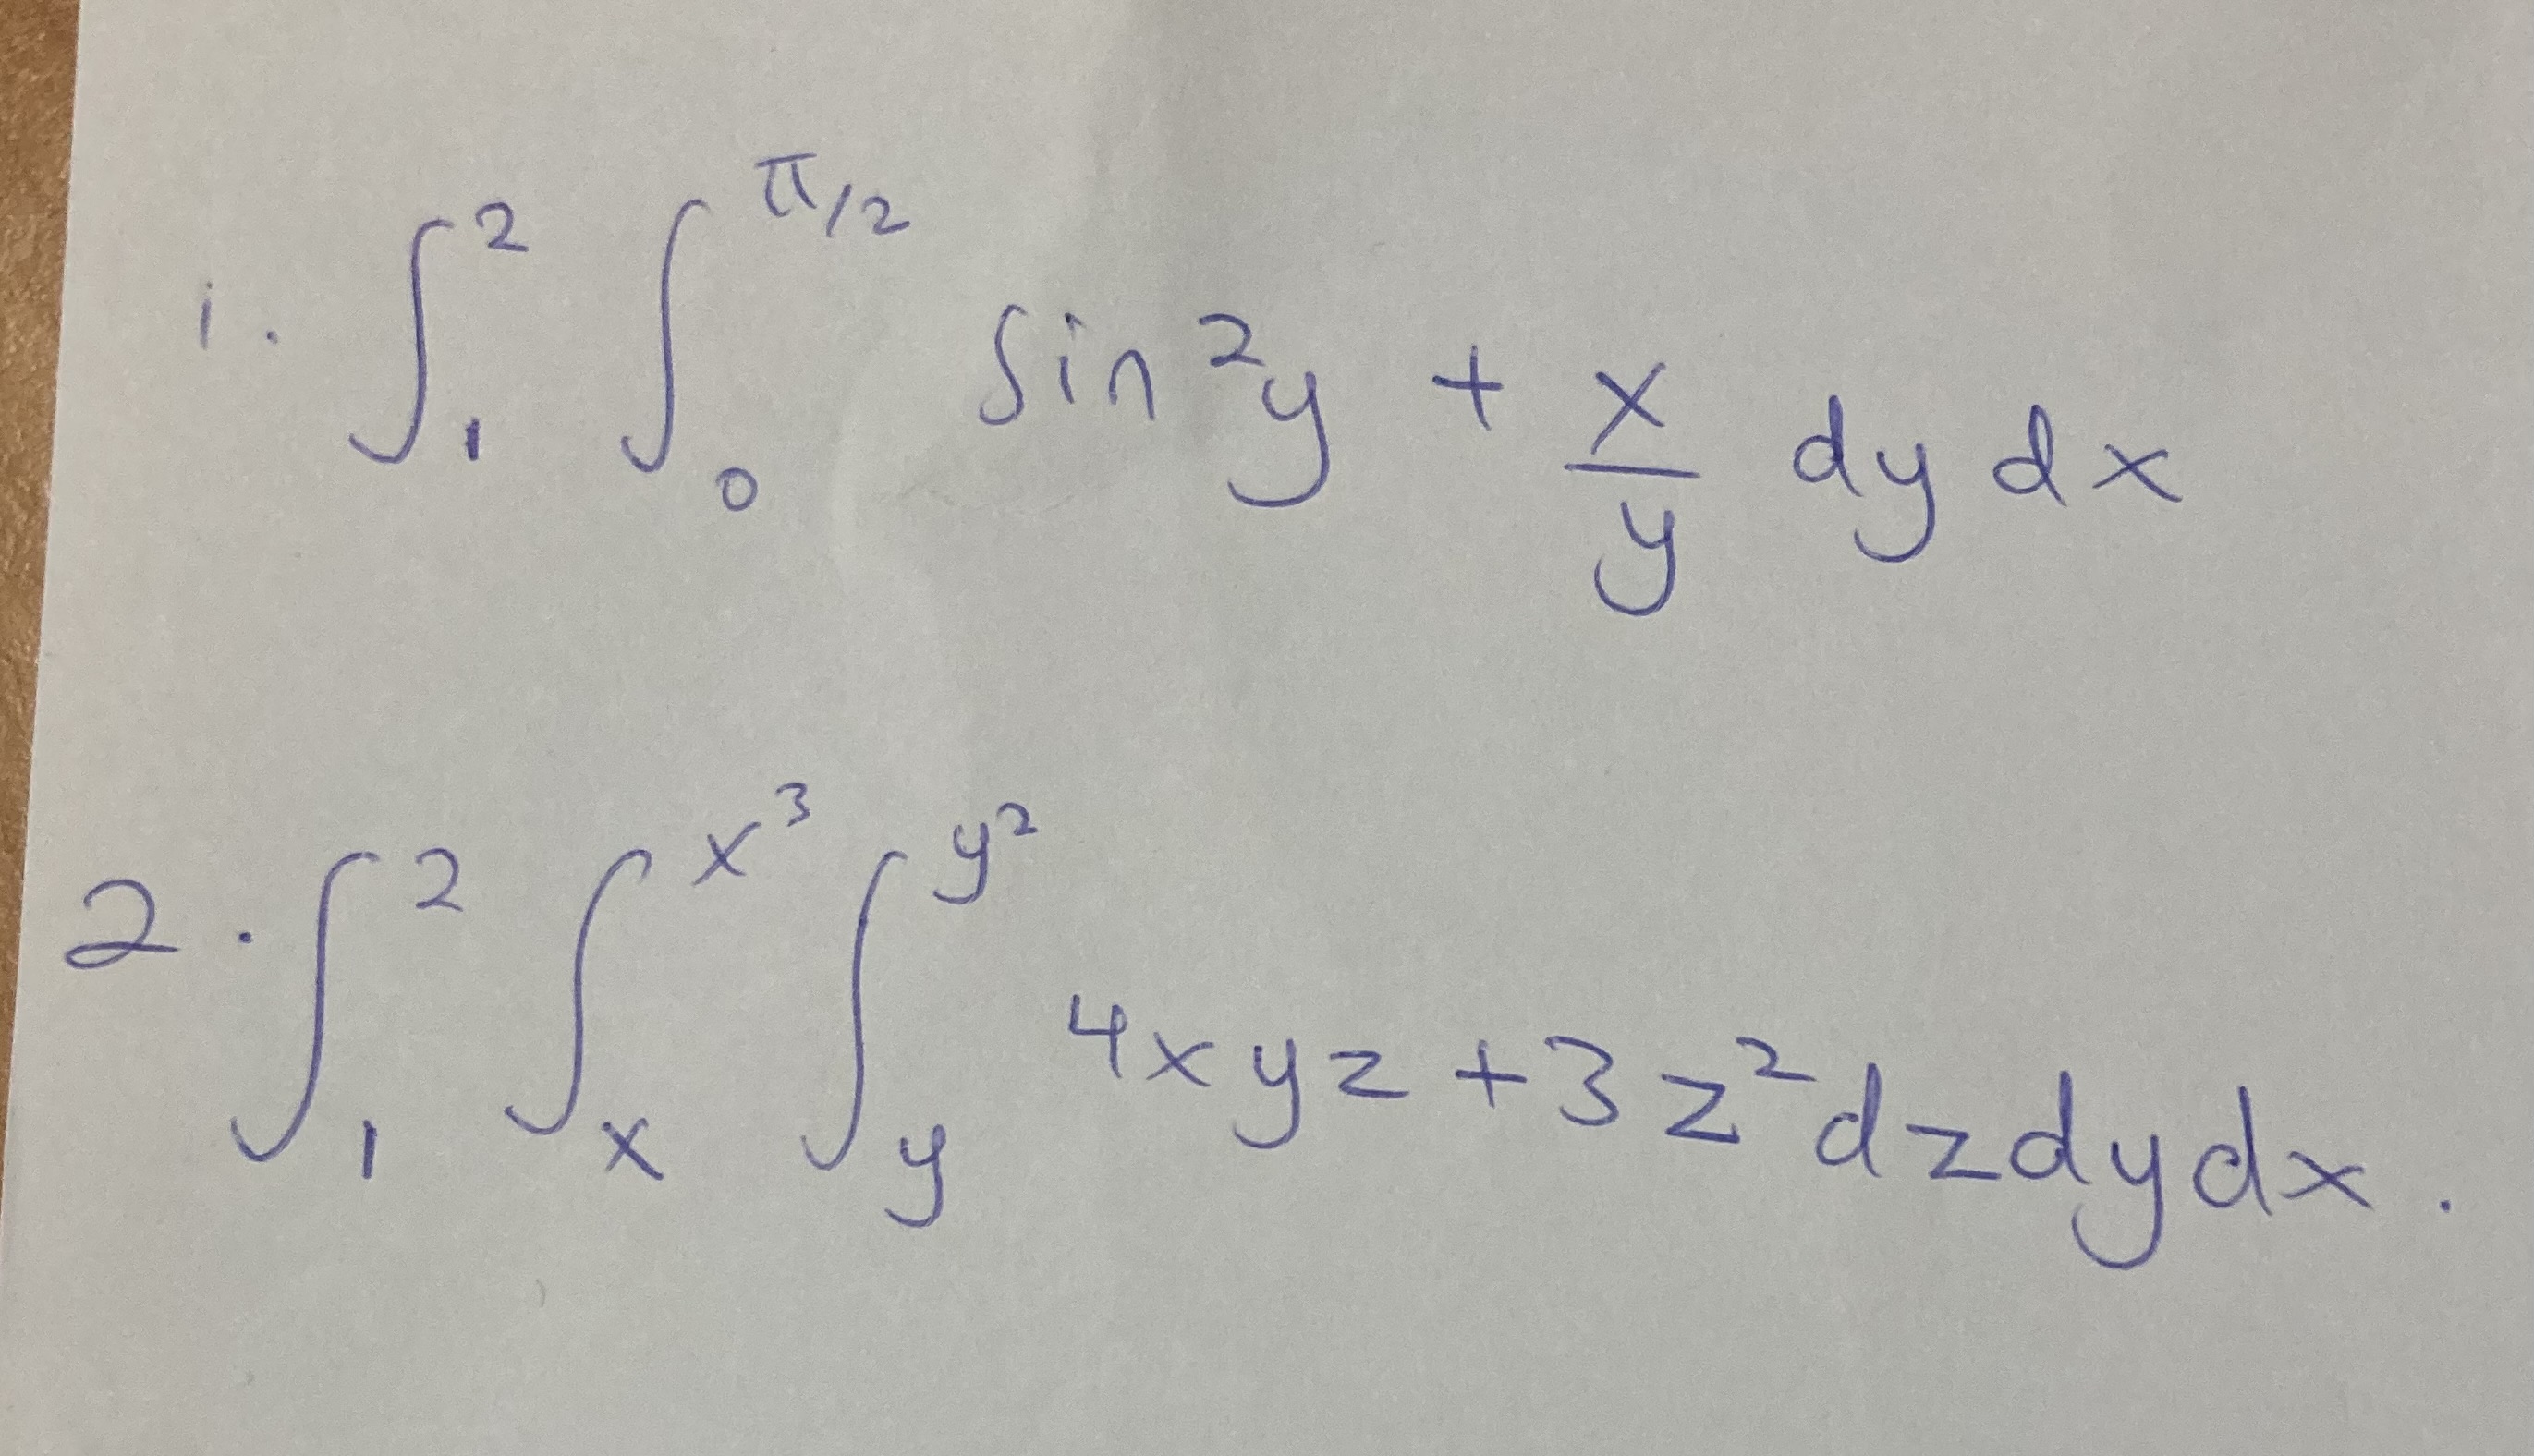 1. ∫₁² ∫₀^{π/2} sin²y + x/y dy dx
2. ∫₁² ∫ₓ^{x³} ∫_y^{y²} 4xyz + 3z² dz dy dx.